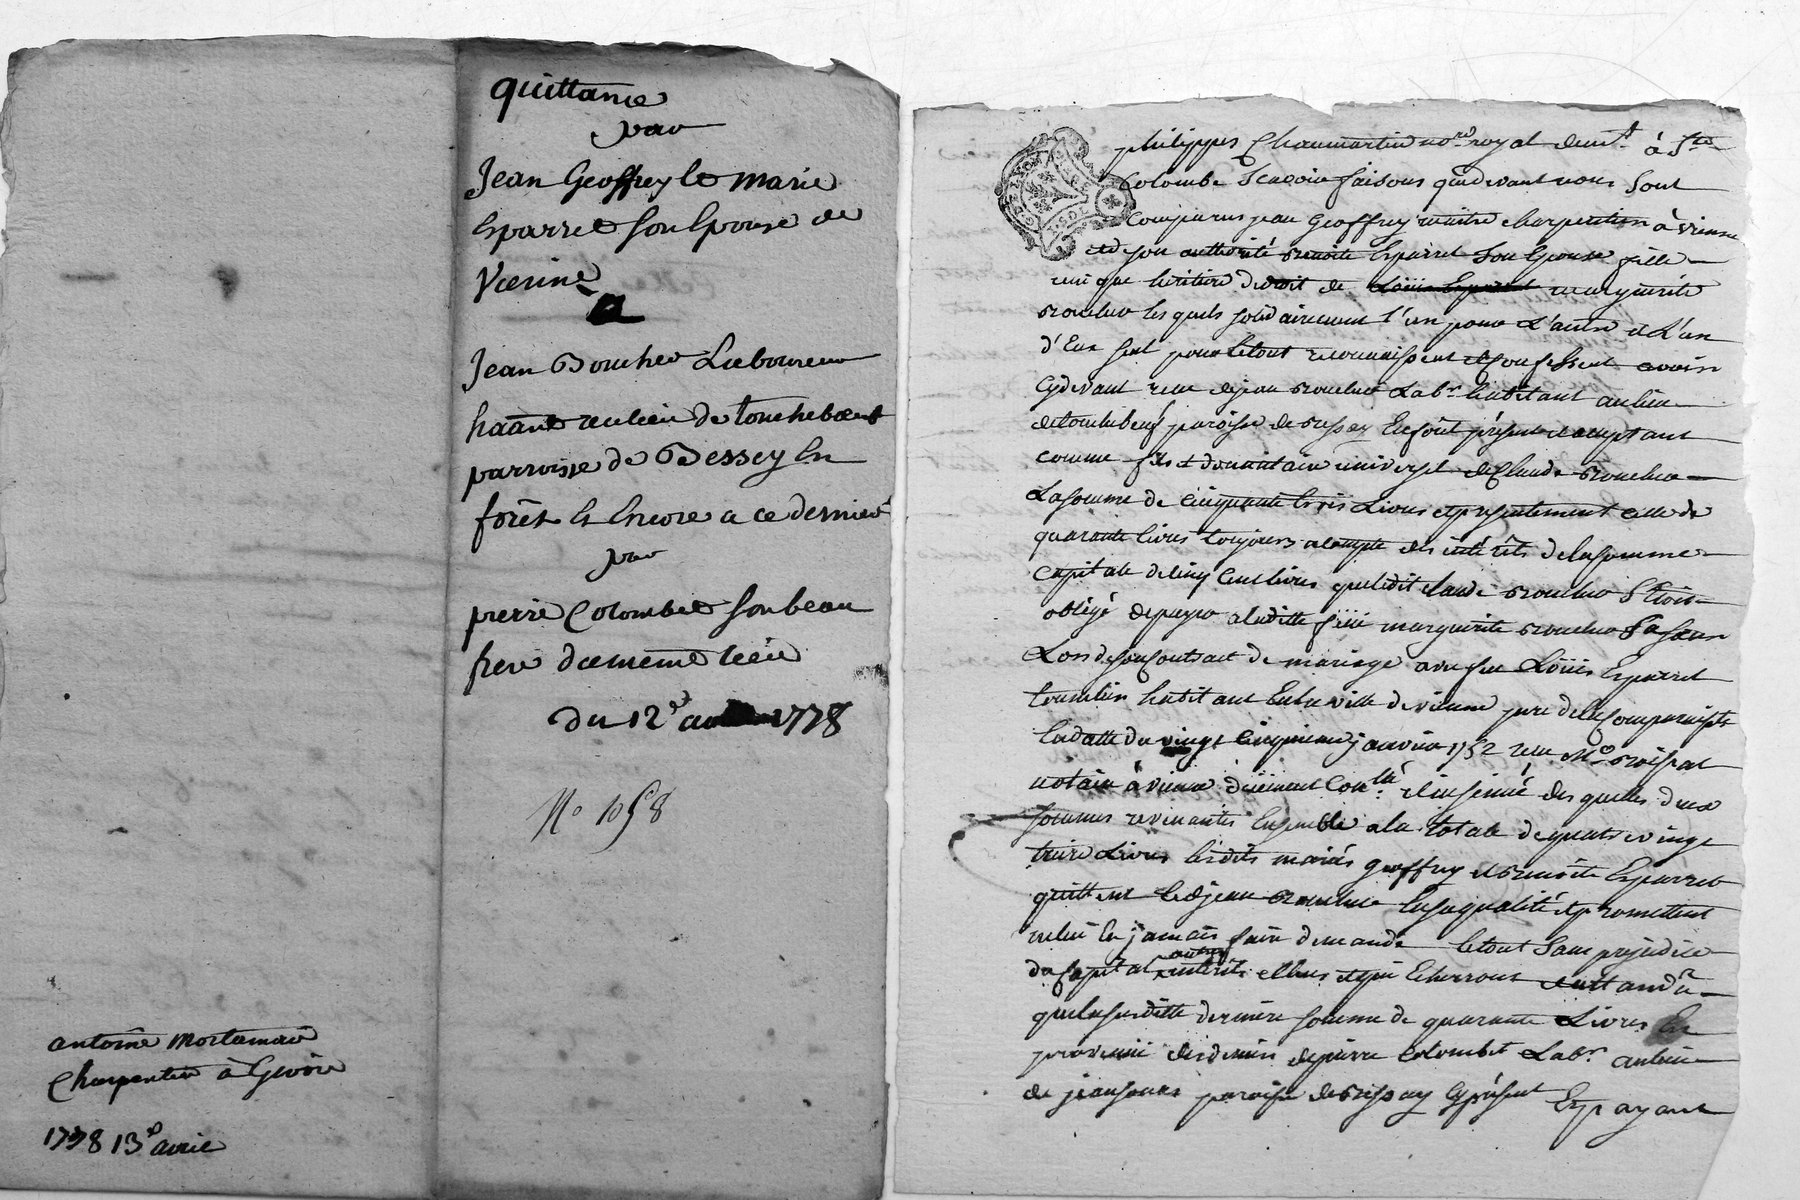 quittance
par
Jean Geoffrey le marie
Esparret son Epouse de
Vienne
a
Jean Boucher Laboureur
haant au lieu de toucheboeuf
parroisse de Bessey En
forêt Et Encore a ce dernier
par
pierre Colombet son beau
frere du même lieu
du 12e 1778
No 1058
antoine
Charpentier à Givors
1778 13e avril
philippes Chaumartin nore royal demt. à Ste
Colombe Scavoir faisons que devant nous sont
Comparus jean Geoffrey maitre charpentier à vienne
et de son authorité benoite Esparret son Epouse fille
unique heritiere de droit de marguerite
boucher les quels solidairement l'un pour L'autre et L'un
d'Eux seul pour le tout reconnoissent et confessent avoir
Cydevant reçu de jean boucher Labr. habitant au lieu
de touchebeuf paroisse de bessey En forêt présent et acceptant
comme fils et donnataire universel de Claude boucher
La somme de cinquante trois Livres et presentement celle de
quarante livres toujours acompte des intérêts de la somme
Capitale de cinq Cent livres que ledit Claude boucher s'étoit
obligé de payer a laditte feüe marguerite boucher sa sœur
Lors de son contract de mariage avec feu Loüis Esparret
habitant En la ville de vienne pere de la comparante
En datte du vingt cinquieme janvier 1752 reçu Me
notaire à vienne düement Conlé. et insinué des quelles deux
sommes revenantes Ensemble a la totale de quatre vingt
treize Livres lesdits mariés Geoffrey et benoite Esparret
quittent led jean boucher En sa qualité et promettent
ne lui En jamais faire demande le tout sans prejudice
du Capital autres interêts échus et qui Echerront attandu
que la susditte derniere somme de quarante Livres Est
provenüe des deniers de pierre Colombet Labr. au lieu
de paroisse de bessey Cy présent Et payant